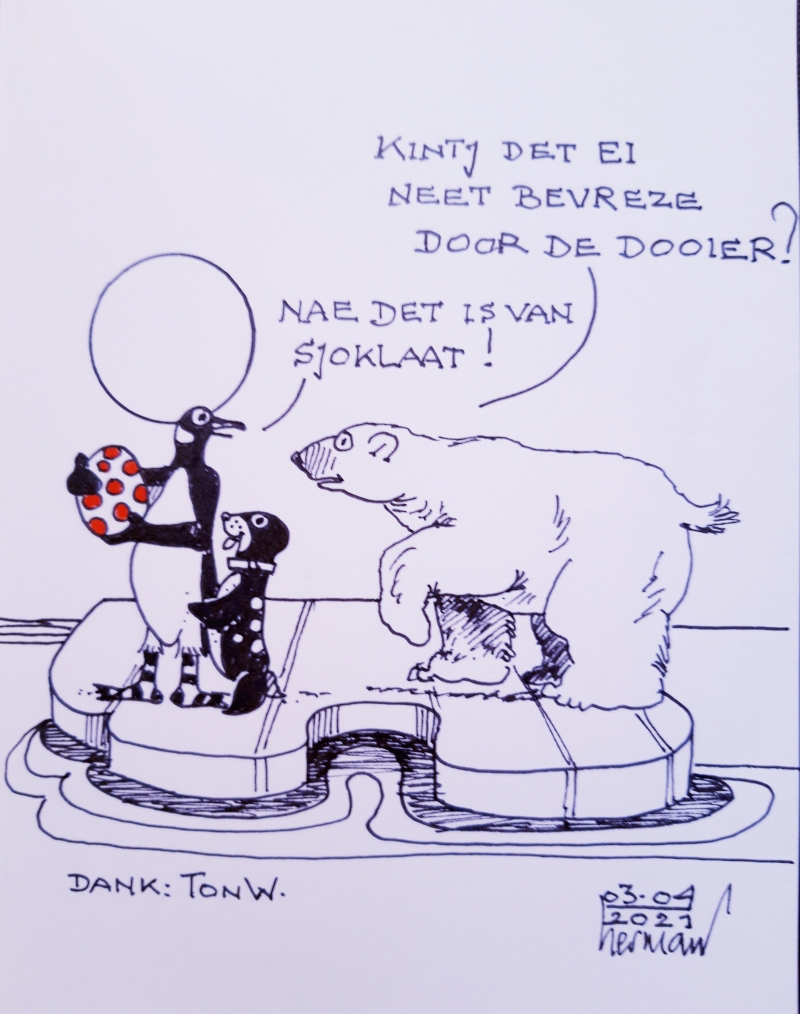 KINTJ DET EI
NEET BEVREZE
DOOR DE DOOIER?
NAE DET IS VAN
SJOKLAAT!
DANK: TON W.
03-04
2021
herman